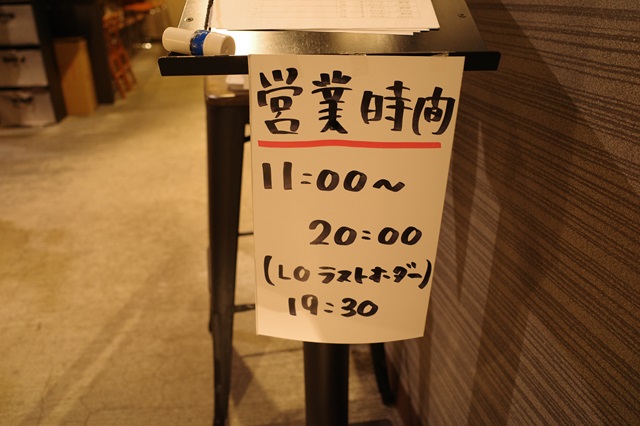 営業時間
11:00～
20:00
(LO ラストオーダー)
19:30